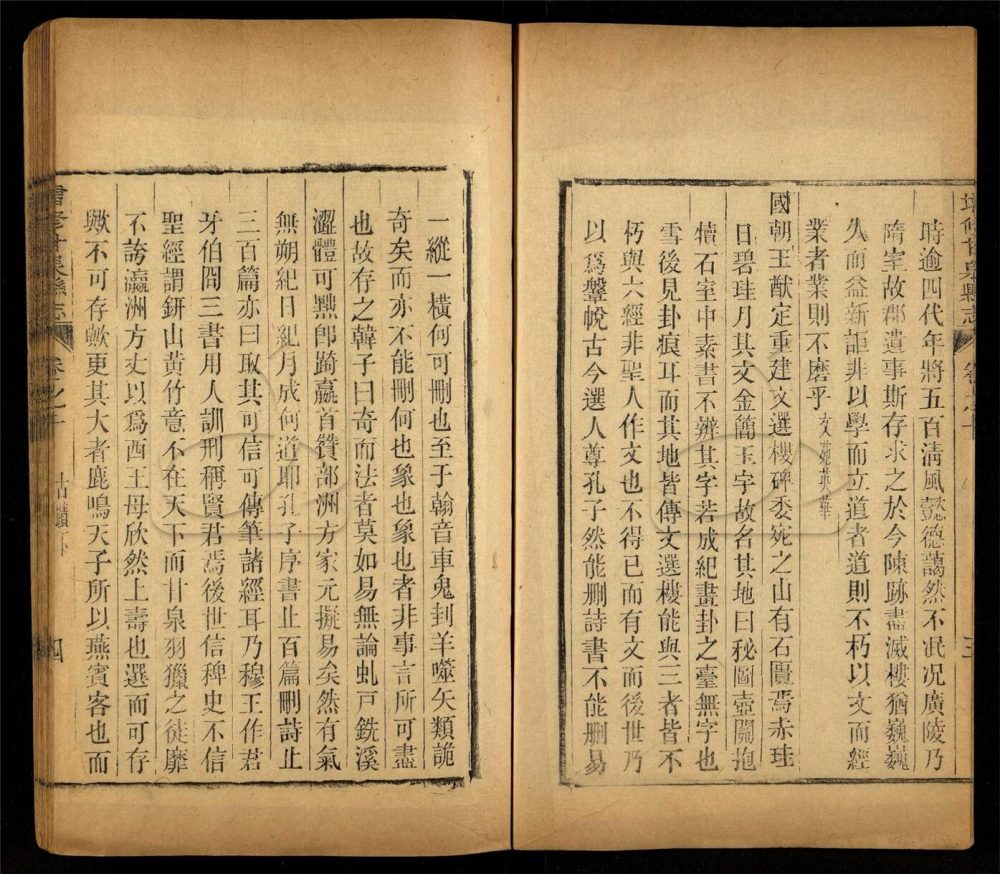 時逾四代年將五百清風懿德藹然不泯况廣陵乃
隋室故郡遺事斯存求之於今陳跡盡滅樓猶巍巍
久而益新詎非以學而立道者道則不朽以文而經
業者業則不磨乎文苑英華
國朝王猷定重建文選樓碑委宛之山有石匱焉赤珪
日碧珪月其文金簡玉字故名其地曰秘圖壺關抱
犢石室中素書不辨其字若成紀畫卦之臺無字也
雪後見卦痕耳而其地皆傳文選樓能與三者皆不
朽與六經非聖人作文也不得已而有文而後世乃
以爲鞶帨古今選人尊孔子然能删詩書不能删易
一縱一橫何可刪也至于翰音車鬼刲羊噬矢類詭
奇矣而亦不能刪何也象也象也者非事言所可盡
也故存之韓子曰奇而法者莫如易無論虬戸銑溪
澀體可黜卽踦嬴首贊部洲方家元擬易矣然有氣
無朔紀日紀月成何道耶孔子序書止百篇刪詩止
三百篇亦曰取其可信可傳筆諸經耳乃穆王作君
牙伯冏三書用人訓刑稱賢君焉後世信稗史不信
聖經謂鈃山黃竹意不在天下而甘泉羽獵之徒靡
不誇瀛洲方丈以爲西王母欣然上壽也選而可存
歟不可存歟更其大者鹿鳴天子所以燕賓客也而
卷之十
古蹟下
四